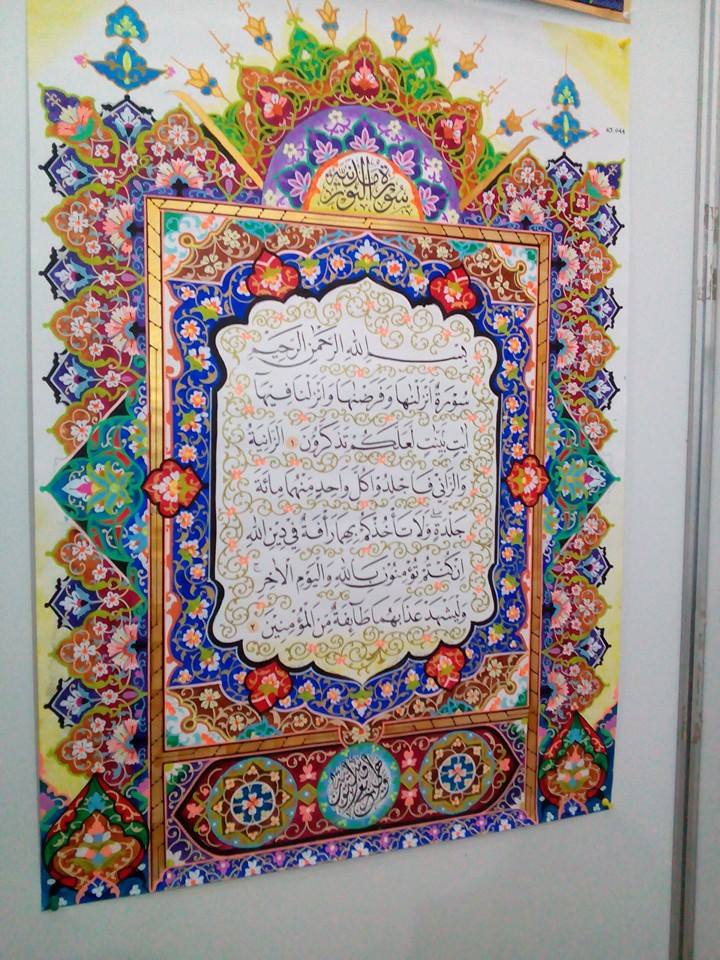 سورة النور مدنية
بِسْمِ اللهِ الرَّحْمٰنِ الرَّحِيْمِ
سُوْرَةٌ اَنْزَلْنٰهَا وَفَرَضْنٰهَا وَاَنْزَلْنَا فِيْهَآ
اٰيٰتٍ بَيِّنٰتٍ لَعَلَّكُمْ تَذَكَّرُوْنَ ١ اَلزَّانِيَةُ
وَالزَّانِيْ فَاجْلِدُوْا كُلَّ وَاحِدٍ مِنْهُمَا مِائَةَ
جَلْدَةٍ ۖ وَلَا تَأْخُذْكُمْ بِهِمَا رَأْفَةٌ فِيْ دِيْنِ اللهِ
اِنْ كُنْتُمْ تُؤْمِنُوْنَ بِاللهِ وَالْيَوْمِ الْاٰخِرِ ۚ
وَلْيَشْهَدْ عَذَابَهُمَا طَآئِفَةٌ مِّنَ الْمُؤْمِنِيْنَ ٢